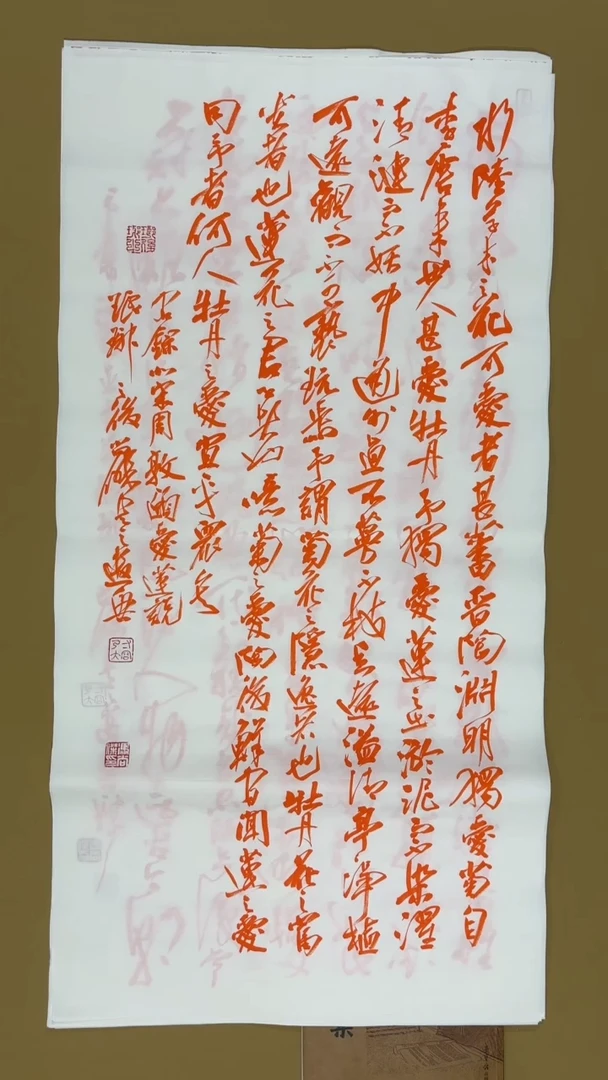 水陸草木之花可愛者甚蕃晋陶淵明獨愛菊自
李唐來世人甚愛牡丹予獨愛蓮之出淤泥而不染濯
清漣而不妖中通外直不蔓不枝香遠溢清亭亭淨植
可遠觀而不可褻玩焉予謂菊花之隱逸者也牡丹花之富
貴者也蓮花之君子者也噫菊之愛陶後鮮有聞蓮之愛
同予者何人牡丹之愛宜乎衆矣
宋周敦頤愛蓮說
之後